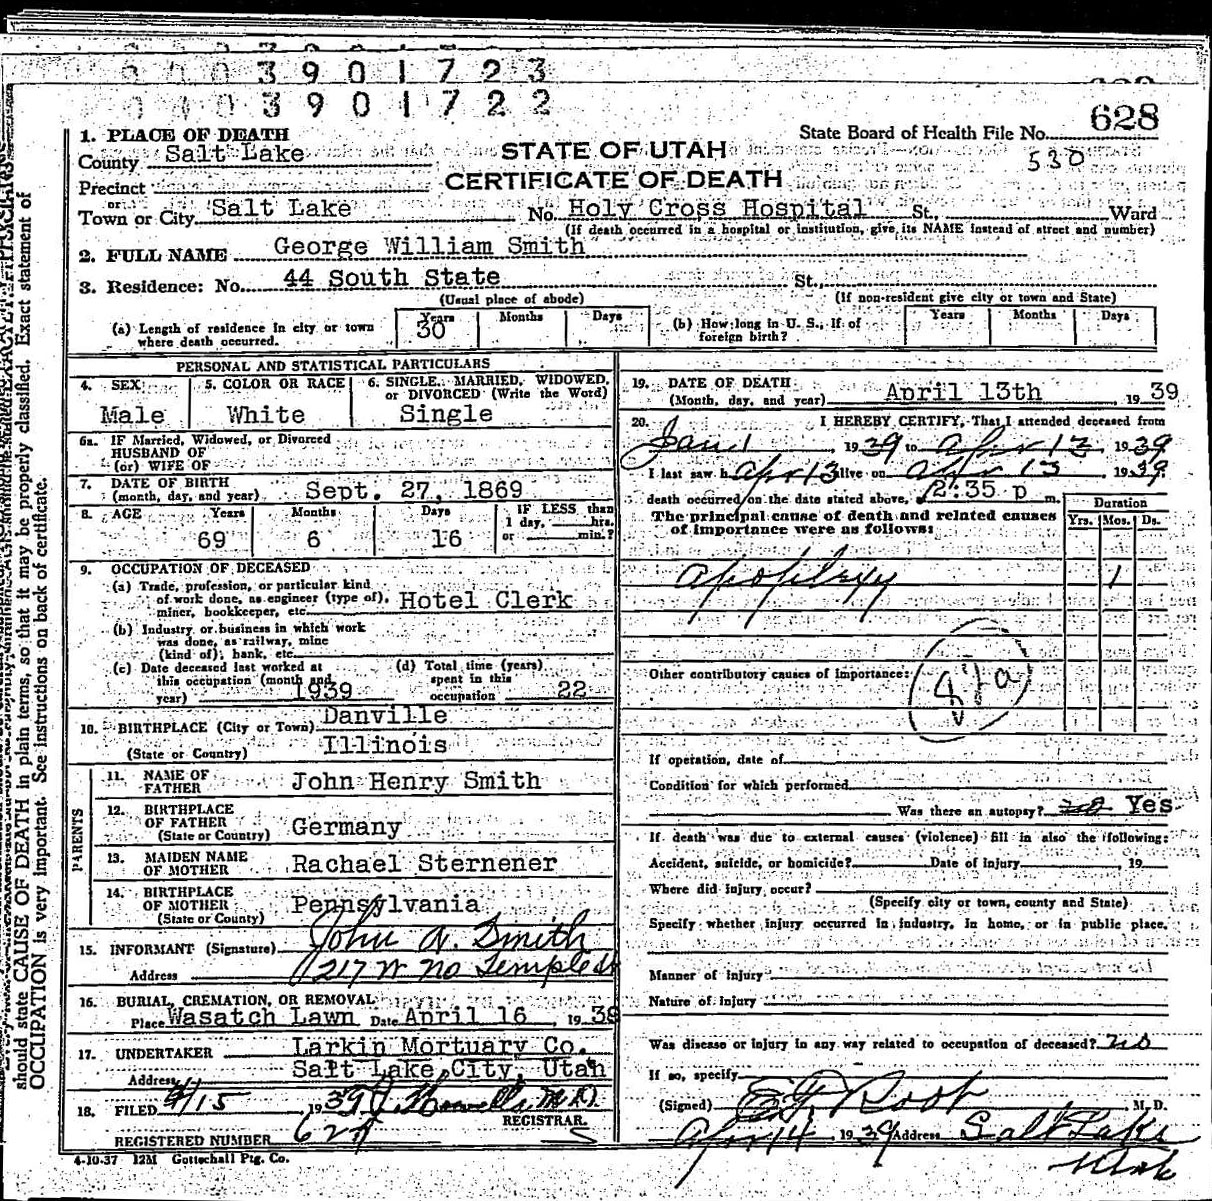 3901723
0403901722
628
State Board of Health File No.
530
1. PLACE OF DEATH
County Salt Lake
STATE OF UTAH
CERTIFICATE OF DEATH
Precinct
or
Town or City Salt Lake No. Holy Cross Hospital St., Ward
(If death occurred in a hospital or institution, give its NAME instead of street and number)
2. FULL NAME George William Smith
3. Residence: No. 44 South State St.,
(Usual place of abode) (If non-resident give city or town and State)
(a) Length of residence in city or town where death occurred. Years 30 Months Days
(b) How long in U. S., if of foreign birth? Years Months Days
PERSONAL AND STATISTICAL PARTICULARS
4. SEX Male
5. COLOR OR RACE White
6. SINGLE, MARRIED, WIDOWED, or DIVORCED (Write the Word) Single
6a. IF Married, Widowed, or Divorced
HUSBAND OF
(or) WIFE OF
7. DATE OF BIRTH
(month, day, and year) Sept. 27, 1869
8. AGE Years Months Days IF LESS than
1 day, hrs.
or min.?
69 6 16
9. OCCUPATION OF DECEASED
(a) Trade, profession, or particular kind
of work done, as engineer (type of),
miner, bookkeeper, etc. Hotel Clerk
(b) Industry or business in which work
was done, as railway, mine
(kind of), bank, etc.
(c) Date deceased last worked at
this occupation (month and
year) 1939
(d) Total time (years)
spent in this
occupation 22
10. BIRTHPLACE (City or Town) Danville
(State or Country) Illinois
PARENTS
11. NAME OF
FATHER John Henry Smith
12. BIRTHPLACE
OF FATHER
(State or Country) Germany
13. MAIDEN NAME
OF MOTHER Rachael Sternener
14. BIRTHPLACE
OF MOTHER
(State or County) Pennsylvania
15. INFORMANT (Signature) John A. Smith
Address 1217 W No Temple St
16. BURIAL, CREMATION, OR REMOVAL
Place Wasatch Lawn Date April 16, 1938
17. UNDERTAKER Larkin Mortuary Co.
Address Salt Lake City, Utah
18. FILED 4/15 1939 Howells M.D.
REGISTRAR.
REGISTERED NUMBER 628
4-10-37 12M Gottschall Ptg. Co.
19. DATE OF DEATH
(Month, day, and year) April 13th, 1939
20. I HEREBY CERTIFY, That I attended deceased from
Jan 1 1939 to Apr 13 1939
I last saw h Apr 13 alive on Apr 13 1939
death occurred on the date stated above, 2:35 p m.
The principal cause of death and related causes
of importance were as follows:
Duration
Yrs. Mos. Ds.
Apoplexy 1
Other contributory causes of importance:
If operation, date of
Condition for which performed
Was there an autopsy? no Yes
If death was due to external causes (violence) fill in also the following:
Accident, suicide, or homicide? Date of injury 19
Where did injury occur?
(Specify city or town, county and State)
Specify whether injury occurred in industry, in home, or in public place.
Manner of injury
Nature of injury
Was disease or injury in any way related to occupation of deceased? no
If so, specify
(Signed) Root M. D.
Apr 14, 1939 Address Salt Lake
Utah
should state CAUSE OF DEATH in plain terms, so that it may be properly classified. Exact statement of
OCCUPATION is very important. See instructions on back of certificate.